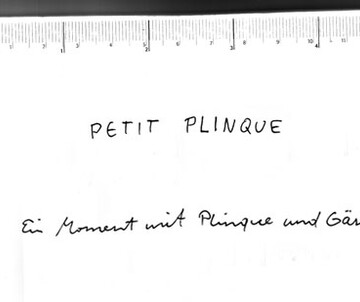 1 2 3 4
PETIT PLINQUE
Ein Moment mit Plinque und Gär